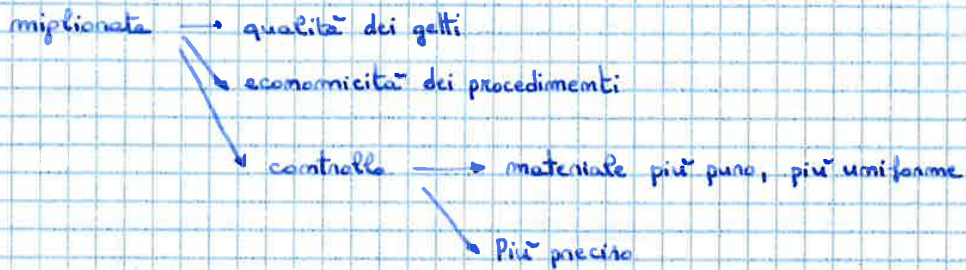 migliorata → qualità dei getti
economicità dei procedimenti
controllo → materiale più puro, più uniforme
Più preciso